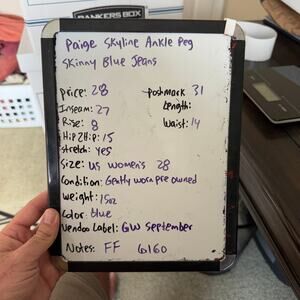 BANKERS BOX
Paige Skyline Ankle Peg
Skinny Blue Jeans
price: 28 Poshmark 31
Inseam: 27 Length:
Rise: 8 Waist: 14
Hip2Hip: 15
Stretch: Yes
Size: US Women's 28
Condition: Gently worn pre owned
Weight: 15oz
Color: blue
Vendoo Label: GW September
Notes: FF 6160